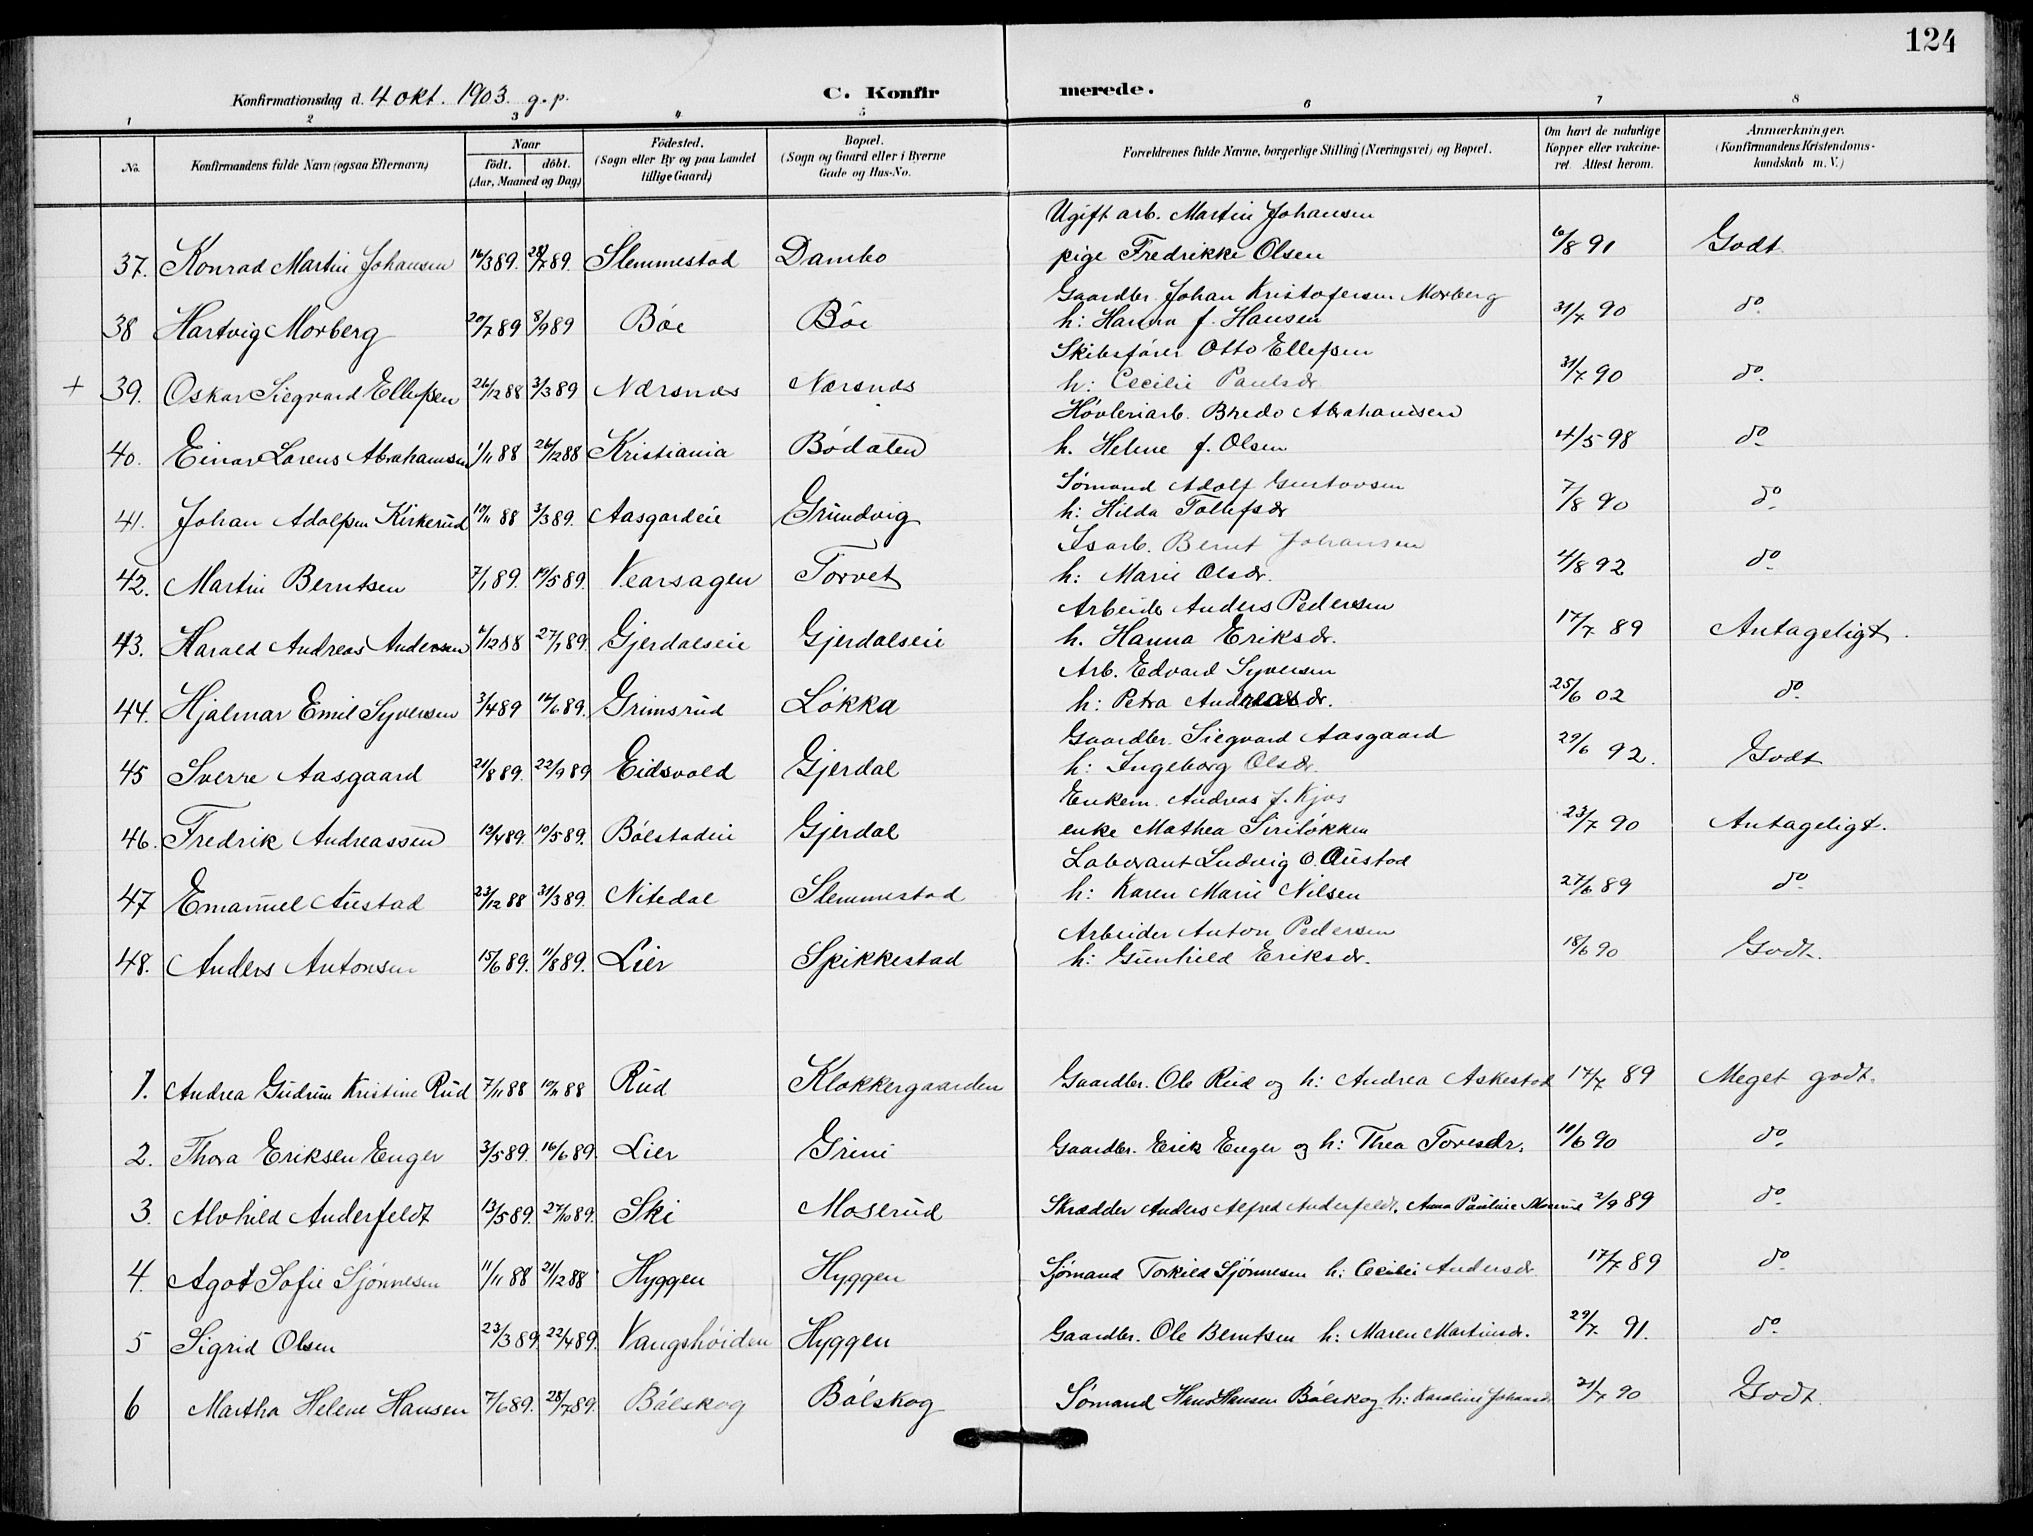 124
Konfirmationsdag d. 4 okt. 1903. g.p. C. Konfirmerede.
1 2 3 4 5 6 7 8
No. Konfirmandens fulde Navn (ogsaa Efternavn) Naar født. døbt. (Aar, Maaned og Dag) Fødested. (Sogn eller By og paa Landet tillige Gaard) Bopæl. (Sogn og Gaard eller i Byerne Gade og Hus-No. Forældrenes fulde Navne, borgerlige Stilling (Næringsvei) og Bopæl. Om havt de naturlige Kopper eller vakcineret. Attest herom. Anmærkninger. (Konfirmandens Kristendomskundskab m. V.)
Ugift arb. Martin Johansen
37. Konrad Martin Johansen 16/3 89. 28/7 89. Slemmestad Dambo pige Fredrikke Olsen 6/8 91 Godt
Gaardbr. Johan Kristofersen Morberg
38 Hartvig Morberg 20/7 89 8/9 89 Böe Böe h: Hanna f. Hansen 31/7 90 do
Skibsfører Otto Ellefsen
+ 39. Oskar Siegvard Ellefsen 26/12 88 3/3 89 Nærsnes Nærsnes h: Cecilie Paulsdr 31/7 90 do
Høvleriarb. Bredo Abrahamsen
40. Einar Lorens Abrahamsen 1/11 88 26/12 88 Kristiania Bödalen h. Helene f. Olsen 4/5 98 do
Sømand Adolf Gustavsen
41. Johan Adolfsen Kirkerud 10/11 88 3/3 89. Aasgardeie Grundvig h: Hilda Tollefsdr 7/8 90 do
Isarb. Bernt Johansen
42. Martin Berntsen 7/1 89. 19/5 89. Vearsagen Torvet h: Marie Olsdr. 4/8 92 do
Arbeider Anders Pedersen
43. Harald Andreas Andersen 4/12 88 27/1 89. Gjerdalseie Gjerdalseie h. Hanna Eriksdr. 17/7 89 Antageligt.
Arb. Edvard Syversen
44. Hjalmar Emil Syversen 3/4 89 16/6 89. Grimsrud Løkka h: Petra Andreasdr. 25/6 02 do
Gaardbr. Siegvard Aasgaard
45 Sverre Aasgaard 21/8 89. 22/9 89 Eidsvold Gjerdal h: Ingeborg Olsdr. 29/6 92. Godt
Enkem. Andreas f. Kjos
46. Fredrik Andreassen 13/4 89. 10/5 89. Bölstadeie Gjerdal enke Mathea Siriløkken 23/7 90 Antageligt.
Laborant Ludvig O. Austad
47 Emanuel Austad 23/12 88 31/3 89. Nitedal Slemmestad h: Karen Marie Nilsen 27/6 89 do
Arbeider Anton Pedersen
48. Anders Antonsen 15/6 89. 11/8 89. Lier Spikkestad h: Gunhild Eriksdr. 18/6 90 Godt.
1. Andrea Gudrun Kristine Rud 7/11 88 10/11 88 Rud Klokkergaarden Gaardbr. Ole Rud og h: Andrea Askestad 17/7 89 Meget godt.
2. Thora Eriksen Enger 3/5 89. 16/6 89. Lier Grini Gaardbr. Erik Enger og h: Thea Toresdr. 11/6 90 do
3. Alvhild Anderfeldt 13/5 89. 27/10 89. Ski Moserud Skrædder Anders Alfred Anderfeldt. Anna Pauline 2/9 89 do
4. Agot Sofie Sjønnesen 11/11 88 21/12 88 Hyggen Hyggen Sjømand Torkild Sjønnesen h: Cecilie Andersdr. 17/7 89 do
5 Sigrid Olsen 23/3 89. 22/4 89. Vangshöiden Hyggen Gaardbr. Ole Berntsen h: Maren Martinsdr. 29/7 91. do
6 Martha Helene Hansen 7/6 89. 28/7 89. Bölskog Bölskog Sømand Hans Hansen Bölskog h: Karoline Johansdr 21/7 90 Godt.